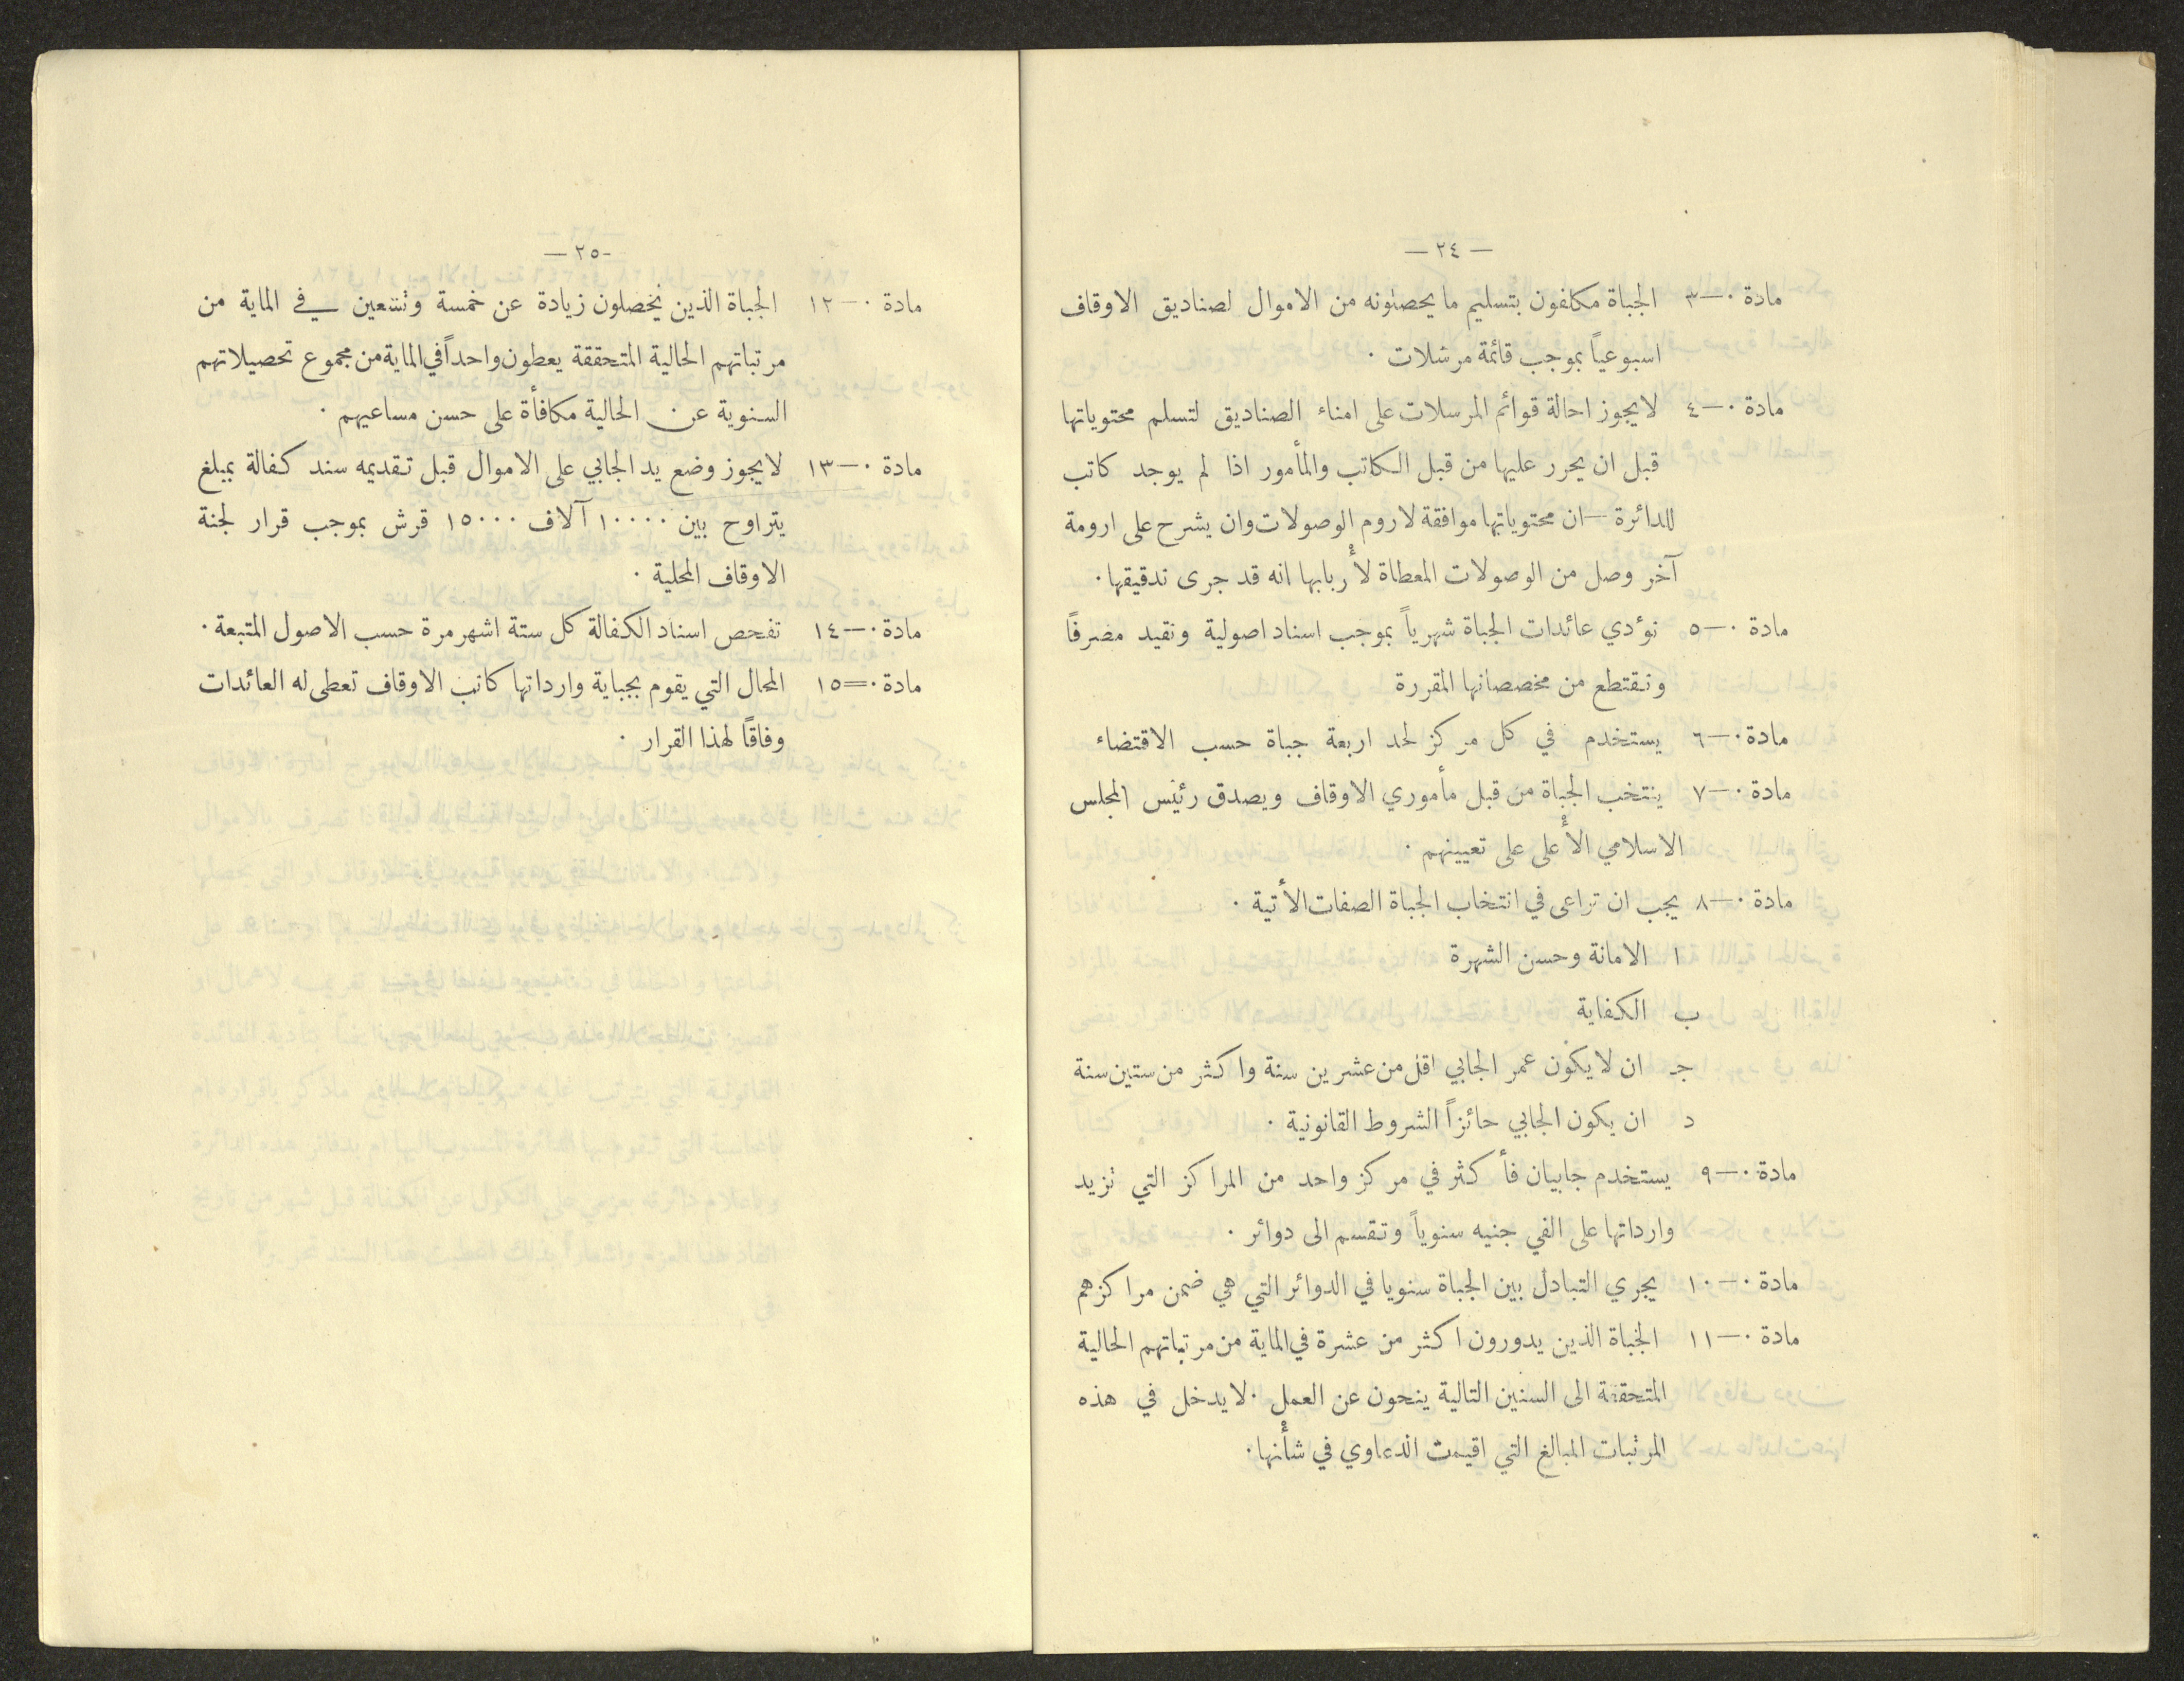 — ٢٤ —
مادة ٠—٣ الجباة مكلفون بتسليم ما يحصلونه من الاموال لصناديق الاوقاف
اسبوعياً بموجب قائمة مرسلات ٠
مادة ٠—٤ لا يجوز احالة قوائم المرسلات على امناء الصناديق لتسلم محتوياتها
قبل ان يحرر عليها من قبل الكاتب والمأمور اذا لم يوجد كاتب
للدائرة — ان محتوياتها موافقة لاروم الوصولات وان يشرح على ارومة
آخر وصل من الوصولات المعطاة لأربابها انه قد جرى تدقيقها ٠
مادة ٠—٥ تؤدي عائدات الجباة شهرياً بموجب اسناد اصولية وتقيد مصرفاً
وتقتطع من مخصصاتها المقررة
مادة ٠—٦ يستخدم في كل مركز لحد اربعة جباة حسب الاقتضاء
مادة ٠—٧ ينتخب الجباة من قبل مأموري الاوقاف ويصدق رئيس المجلس
الاسلامي الأعلى على تعيينهم ٠
مادة ٠—٨ يجب ان تراعى في انتخاب الجباة الصفات الأتية ٠
ا الامانة وحسن الشهرة
ب الكفاية
جـ ان لا يكون عمر الجابي اقل من عشرين سنة واكثر من ستين سنة
د ان يكون الجابي حائزاً الشروط القانونية ٠
مادة ٠—٩ يستخدم جابيان فأكثر في مركز واحد من المراكز التي تزيد
وارداتها على الفي جنيه سنوياً وتقسم الى دوائر ٠
مادة ٠—١٠ يجري التبادل بين الجباة سنويا في الدوائر التي هي ضمن مراكزهم
مادة ٠—١١ الجباة الذين يدورون اكثر من عشرة في الماية من مرتباتهم الحالية
المتحققة الى السنين التالية ينحون عن العمل ٠ لا يدخل في هذه
المرتبات المبالغ التي اقيمت الدعاوي في شأنها ٠
-٢٥ —
مادة ٠—١٢ الجباة الذين يحصلون زيادة عن خمسة وتسعين في الماية من
مرتباتهم الحالية المتحققة يعطون واحداً في الماية من مجموع تحصيلاتهم
السنوية عن الحالية مكافأة على حسن مساعيهم ٠
مادة ٠—١٣ لا يجوز وضع يد الجابي على الاموال قبل تقديمه سند كفالة بمبلغ
يتراوح بين ١٠٠٠٠ آلاف ١٥٠٠٠ قرش بموجب قرار لجنة
الاوقاف المحلية ٠
مادة ٠—١٤ تفحص اسناد الكفالة كل ستة اشهر مرة حسب الاصول المتبعة ٠
مادة ٠=١٥ المحال التي يقوم بجباية وارداتها كاتب الاوقاف تعطى له العائدات
وفاقاً لهذا القرار ٠